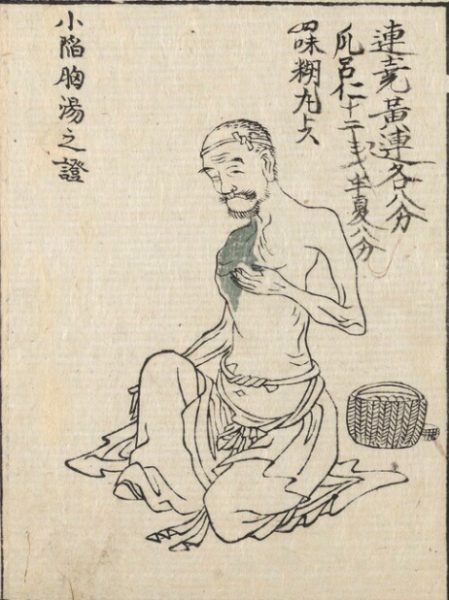 連尭黃連各八分
瓜呂仁十二半夏八分
四味糊丸
小陷胸湯之證